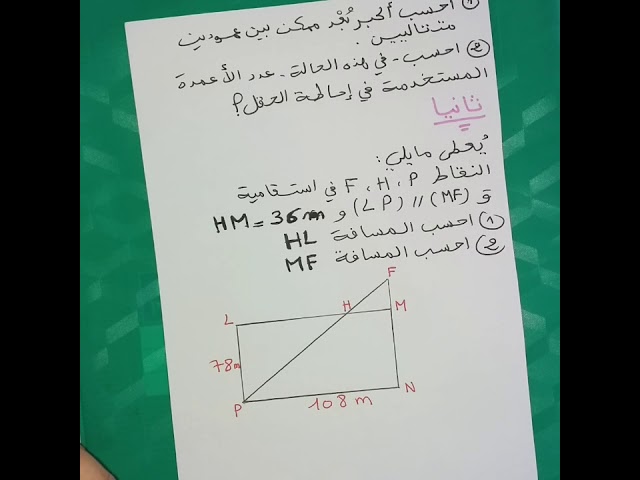 ① احسب أكبر بُعْد ممكن بين عمودين
متتاليين.
② احسب - في هذه الحالة - عدد الأعمدة
المستخدمة في إحاطة الحقل؟
ثانيا
يُعطى مايلي:
النقاط F، H، P في استقامية
و (MF) // (LP) و HM = 36 m
① احسب المسافة HL
② احسب المسافة MF
F
L H M
78m
P 108 m N